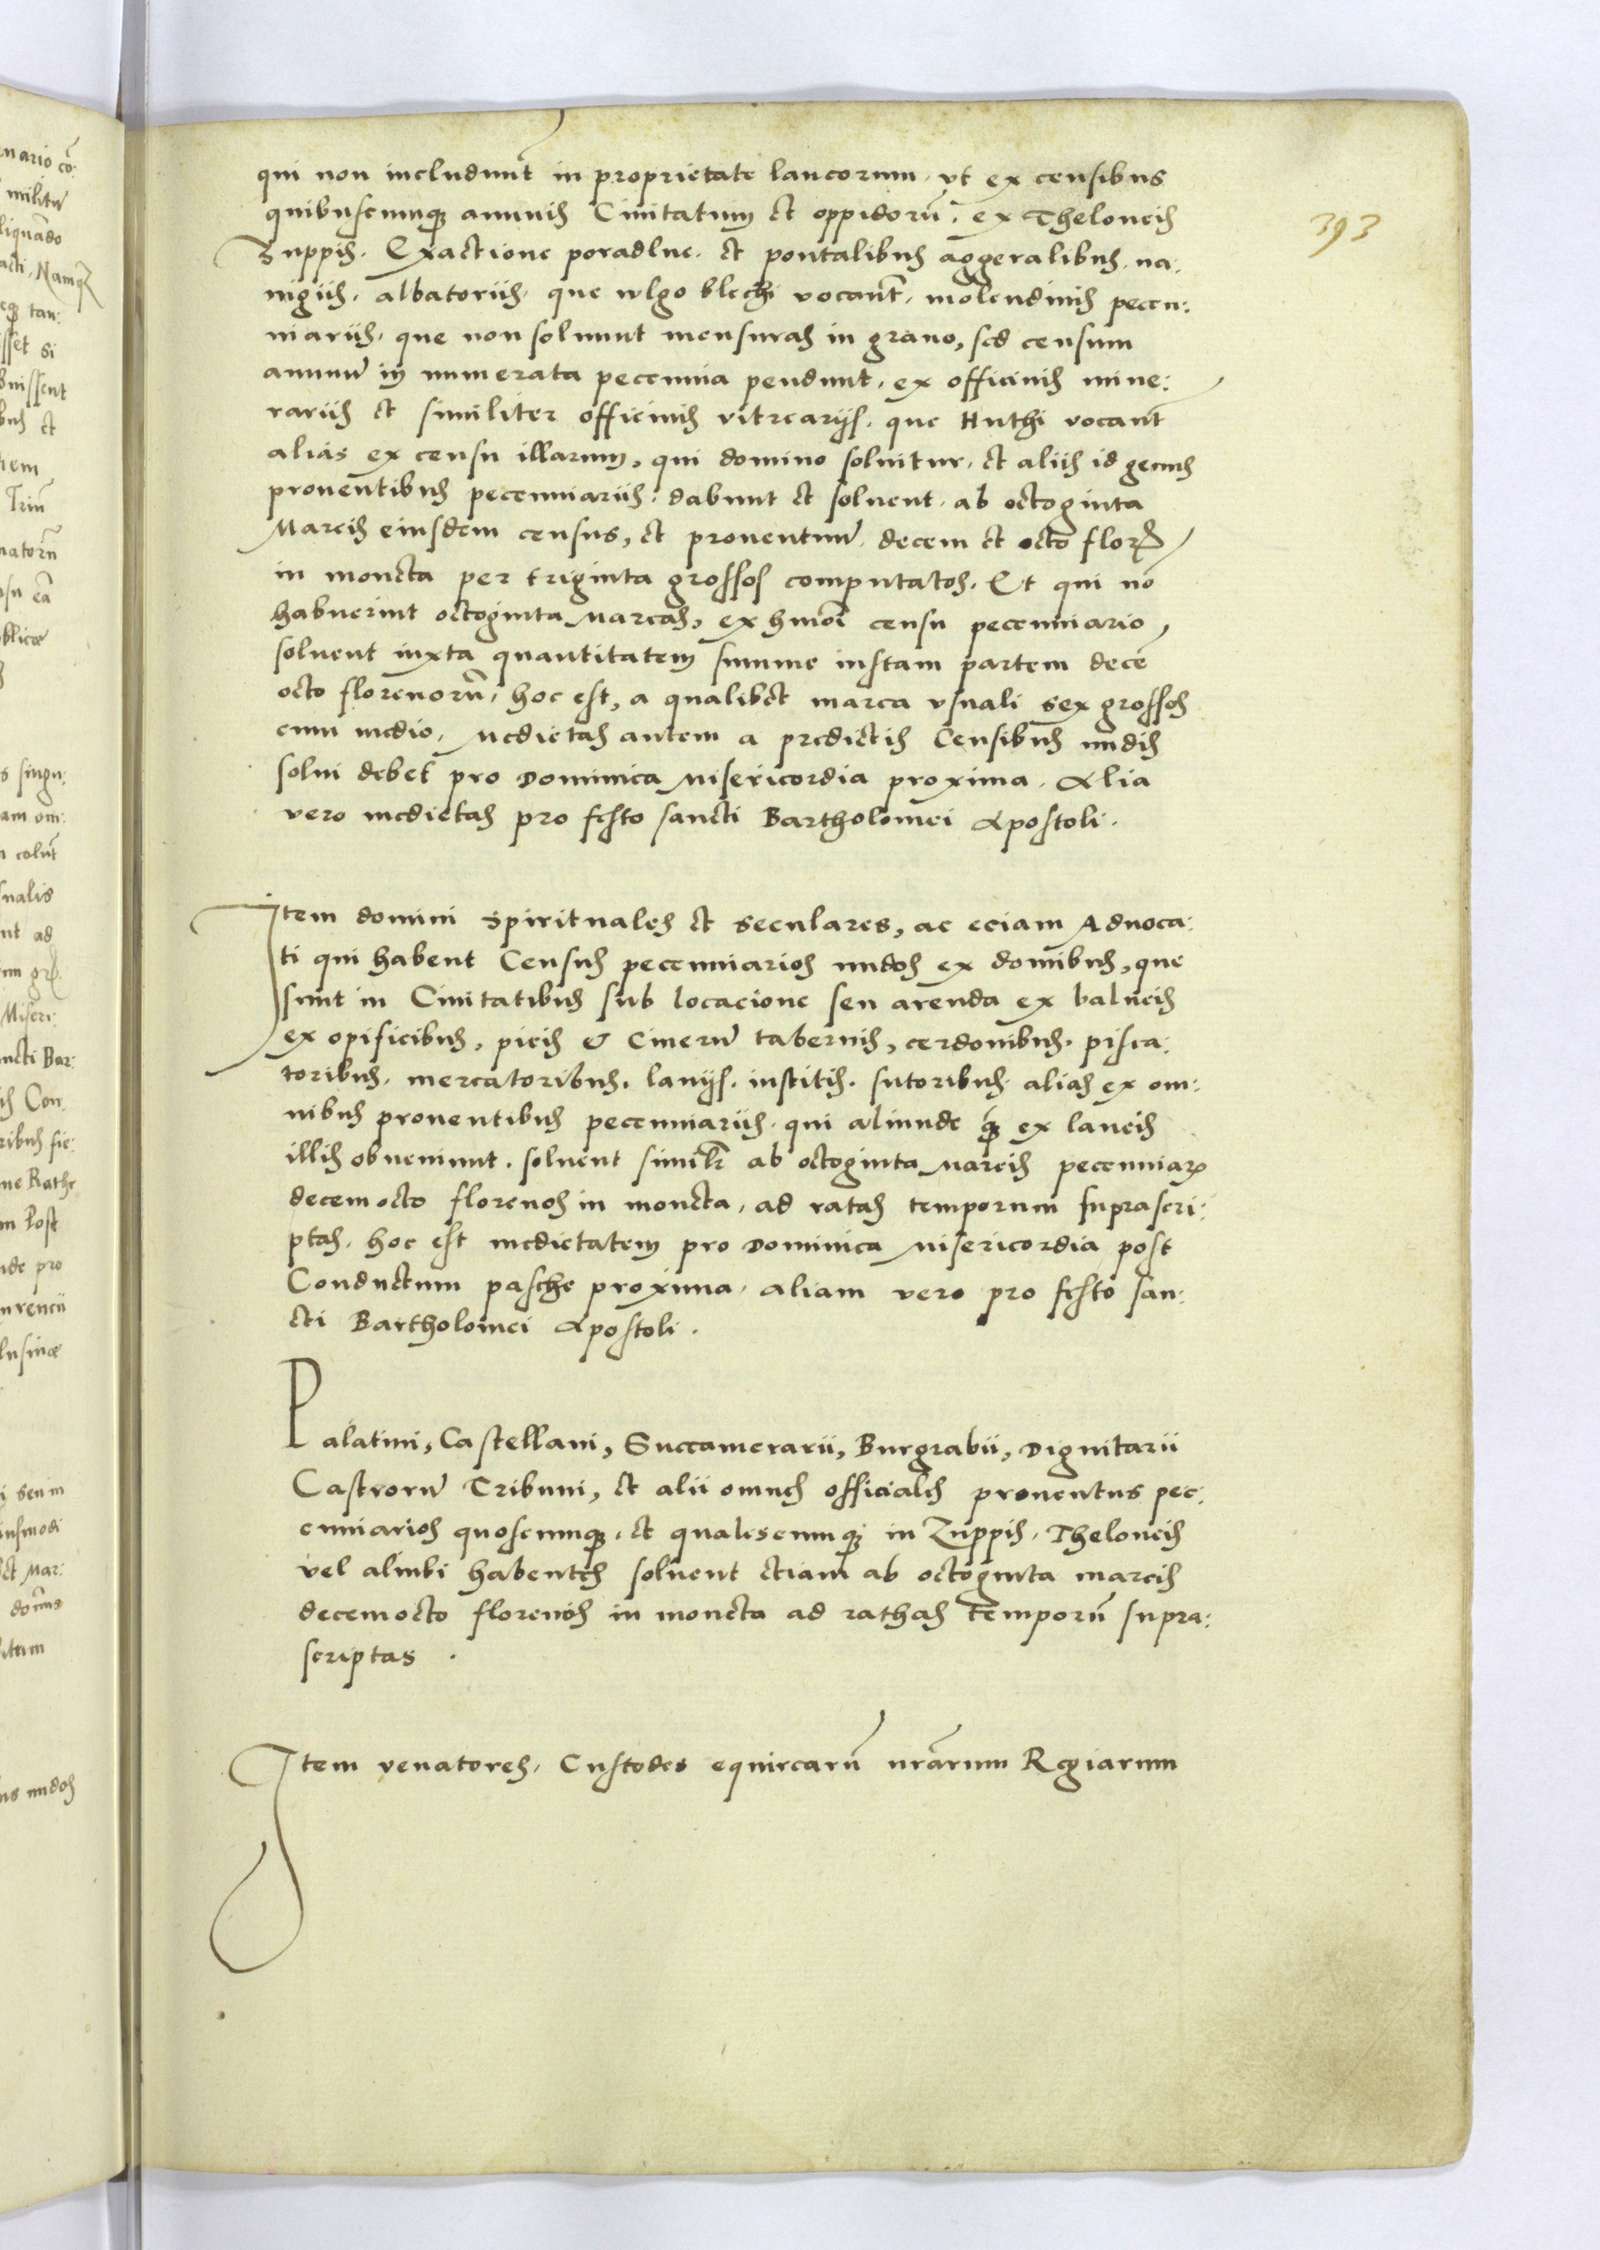 393
qui non includunt̄ in proprietate laneorum, vt ex censibus
quibuscunqȝ annuis Ciuitatum et oppidorū, ex Theloneis
Zuppis. Exactione poradlne. et pontalibus aggeralibus, na:
uigiis, albatoriis, que wlgo blechi vocant̄, molendinis pecu:
niariis, que non soluunt mensuras in grano, sed censum
annuū in numerata peccunia pendunt, ex officinis mine:
rariis et similiter officinis vitrearijs. que Huthi vocant̄
alias ex censu illarum, qui domino soluitur, et aliis id genus
prouentibus peccuniariis. dabunt et soluent, ab octoginta
Marcis eiusdem census, et prouentuū decem et octo flor
in moneta per triginta grossos computatos. Et qui nō
habuerint octoginta marcas, ex hmōi censu peccuniario,
soluent iuxta quantitatem summe iustam partem decē
octo florenorū, hoc est, a qualibet marca vsuali sex grossos
cum medio. Medietas autem a predictis Censibus nudis
solui debet pro Dominica Misericordia proxima. Alia
vero medietas pro festo sancti Bartholomei Apostoli.
Item domini Spirituales et seculares, ac eciam Aduoca:
ti qui habent Census peccuniarios nudos ex domibus, que
sunt in Ciuitatibus sub locacione seu arenda ex balneis
ex opificibus, picis & Cinerū tabernis, cerdonibus. pisca:
toribus, mercatoribus. lanijs. institis. sutoribus. alias ex om:
nibus prouentibus peccuniariis. qui aliunde qȝ ex laneis
illis obueniunt. soluent simil̄r ab octoginta Marcis peccuniarꝝ
decemocto florenos in moneta, ad ratas temporum suprascri:
ptas. hoc est medietatem pro Dominica Misericordia post
Conductum pasche proxima. aliam vero pro festo san:
cti Bartholomei Apostoli.
Palatini, Castellani, Succamerarii, Burgrabii, Dignitarii
Castrorū Tribuni, et alii omnes officiales prouentus pec:
cuniarios quoscunqȝ, et qualescunqȝ in Zuppis, Theloneis
vel alinbi habentes soluent etiam ab octoginta marcis
decemocto florenos in moneta ad rathas temporū supra:
scriptas.
Item venatores, Custodes equirearū nr̄arum Regiarum